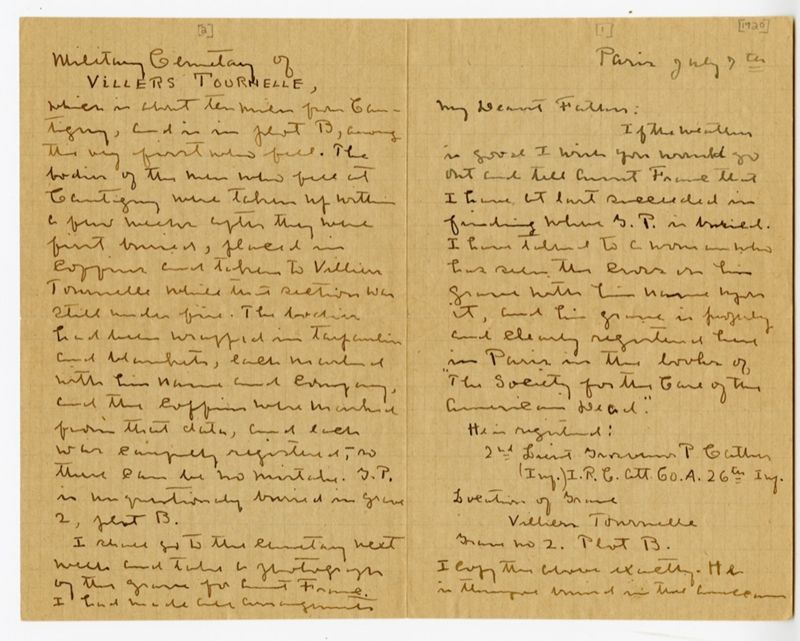 [1] [1920]
Paris July 7th
My Dearest Father:
If the weather
is good I wish you would go
out and tell Aunt Franc that
I have at last succeeded in
finding where G. P. is buried.
I have talked to a woman who
has seen the cross on his
grave with his name upon
it, and his grave is properly
and clearly registered here
in Paris in the books of
"The Society for the Care of the
American Dead."
He is registered:
2nd Lieut Grosvenor P Cather
(Inf.) I. R. C. Att. Co. A. 26th Inf.
Location of Grave
Villiers Tournelle
Grave no 2. Plot B.
I copy the above exactly. He
is therefore buried in the American
[2]
Military Cemetary of
VILLERS TOURNELLE,
which is about ten miles from Can-
tigny, and is in plot B, among
the very first who fell. The
bodies of the men who fell at
Cantigny were taken up within
a few weeks after they were
first buried, placed in
coffins and taken to Villiers
Tournelle while that section was
still under fire. The bodies
had been wrapped in tarpaulin
and blankets, each marked
with his name and company,
and the coffins were marked
from that data, and each
was carefully registered, so
there can be no mistake. G. P.
is unquestionably buried in grave
2, plot B.
I shall go to the cemetary next
week and take a photograph
of the grave for Aunt Franc.
I had made all arrangements